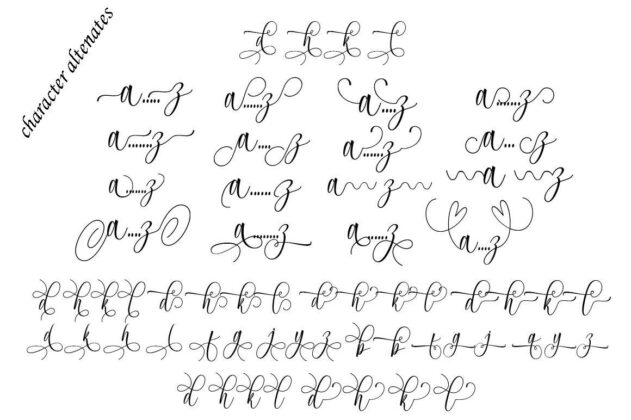 character altenates
d h k l
a.....z a......z a....z a.......z
a......z a....z a......z a... z
a.....z a...... z a z a z
a...z a.......z a......z a....z
d h k l d h k l d h k l d h k l
d k h l t g j y z b b t g j q y z
d h k l d h k l